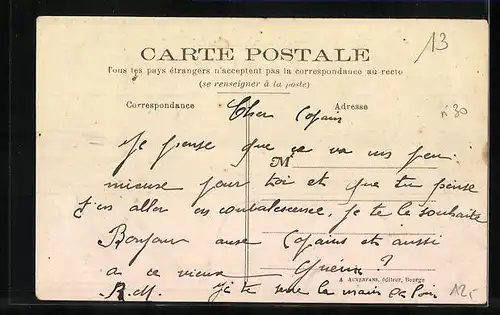 13
CARTE POSTALE
Tous les pays étrangers n'acceptent pas la correspondance au recto
(se renseigner à la poste)
Correspondance
Adresse
n°30
Cher Copain
Je pense que ça va un peu
M
mieux pour toi et que tu penses
t'en aller en convalescence, je te le souhaite
Bonjour aux Copains et aussi
a ce vieux ?
A. AUXENFANS, éditeur, Bourge
R.M. je te serre la main de loin
12,-